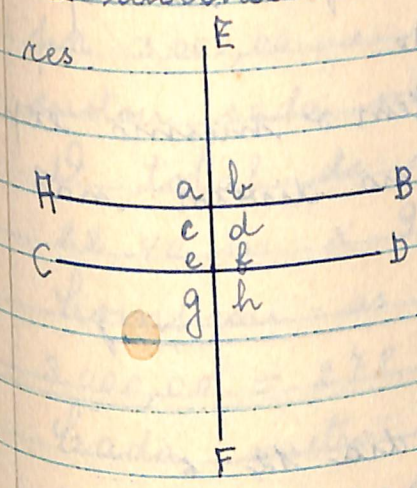 E
res.
A a b B
c d
C e f D
g h
F